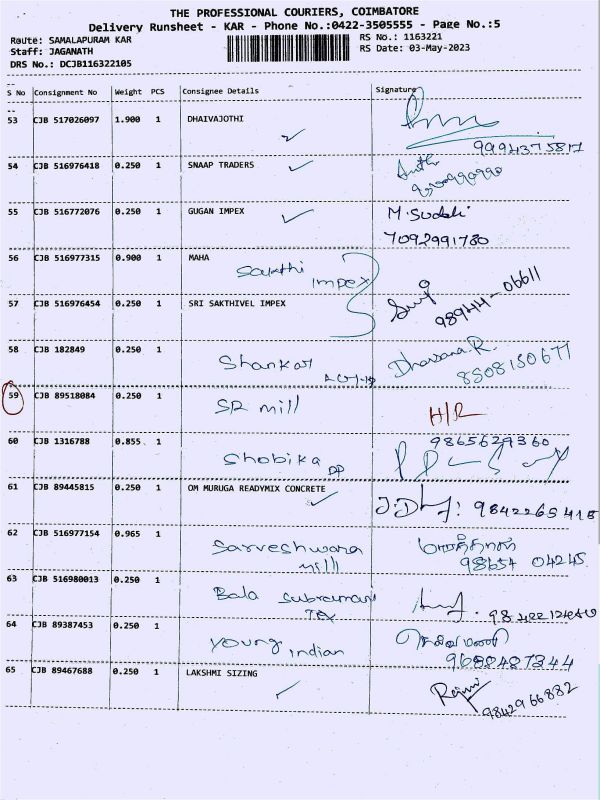 THE PROFESSIONAL COURIERS, COIMBATORE
Delivery Runsheet - KAR - Phone No.:0422-3505555 - Page No.:5
Route: SAMALAPURAM KAR
RS No.: 1163221
Staff: JAGANATH
RS Date: 03-May-2023
DRS No.: DCJB116322105
S No Consignment No Weight PCS Consignee Details Signature
53 CJB 517026097 1.900 1 DHAIVAJOTHI
9994375817
54 CJB 516976418 0.250 1 SNAAP TRADERS
55 CJB 516772076 0.250 1 GUGAN IMPEX M. Sudali
7092991780
56 CJB 516977315 0.900 1 MAHA
Sakthi impex
98944-06611
57 CJB 516976454 0.250 1 SRI SAKTHIVEL IMPEX
58 CJB 182849 0.250 1 Shankar Dharana.R.
8508150677
59 CJB 89518084 0.250 1 SR mill H/R
60 CJB 1316788 0.855 1 Shobika DP 9865629360
61 CJB 89445815 0.250 1 OM MURUGA READYMIX CONCRETE
9842265418
62 CJB 516977154 0.965 1 Sarveshwara
mill 98654 04245
63 CJB 516980013 0.250 1 Bala Subramani
Tex
64 CJB 89387453 0.250 1 Young indian செல்வமணி
9680407344
65 CJB 89467688 0.250 1 LAKSHMI SIZING
9842966882